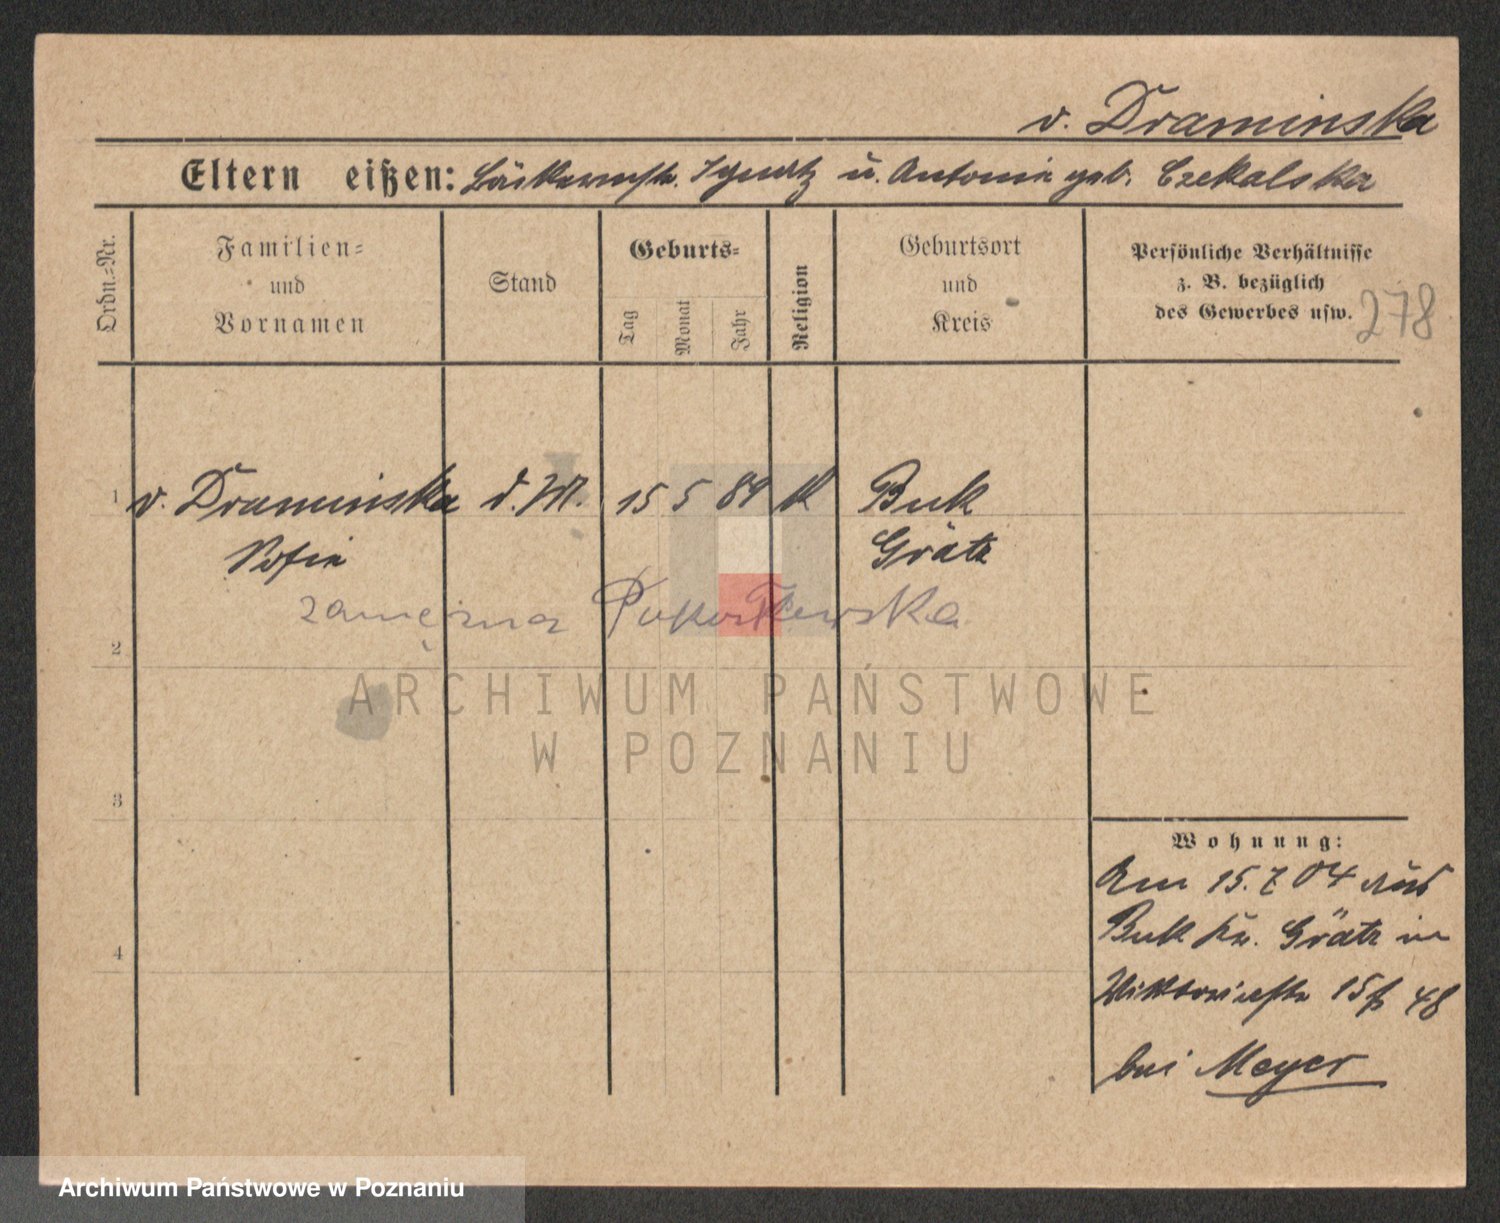 v. Draminska
Eltern eißen: Bäckermstr. Ignatz u. Antonie geb. Czekalska
Ordn.-Nr.
Familien-
und
Vornamen
Stand
Geburts-
Tag
Monat
Jahr
Religion
Geburtsort
und
Kreis
Persönliche Verhältnisse
z. B. bezüglich
des Gewerbes usw.
278
1 v. Draminska d. M. 15 5 84 k Buk
Sofie Grätz
zamężna
2
ARCHIWUM PAŃSTWOWE
W POZNANIU
3
4
Wohnung:
Am 15. 7 04 aus
Buk Kr. Grätz in
Viktoriastr 15
bei Meyer
Archiwum Państwowe w Poznaniu